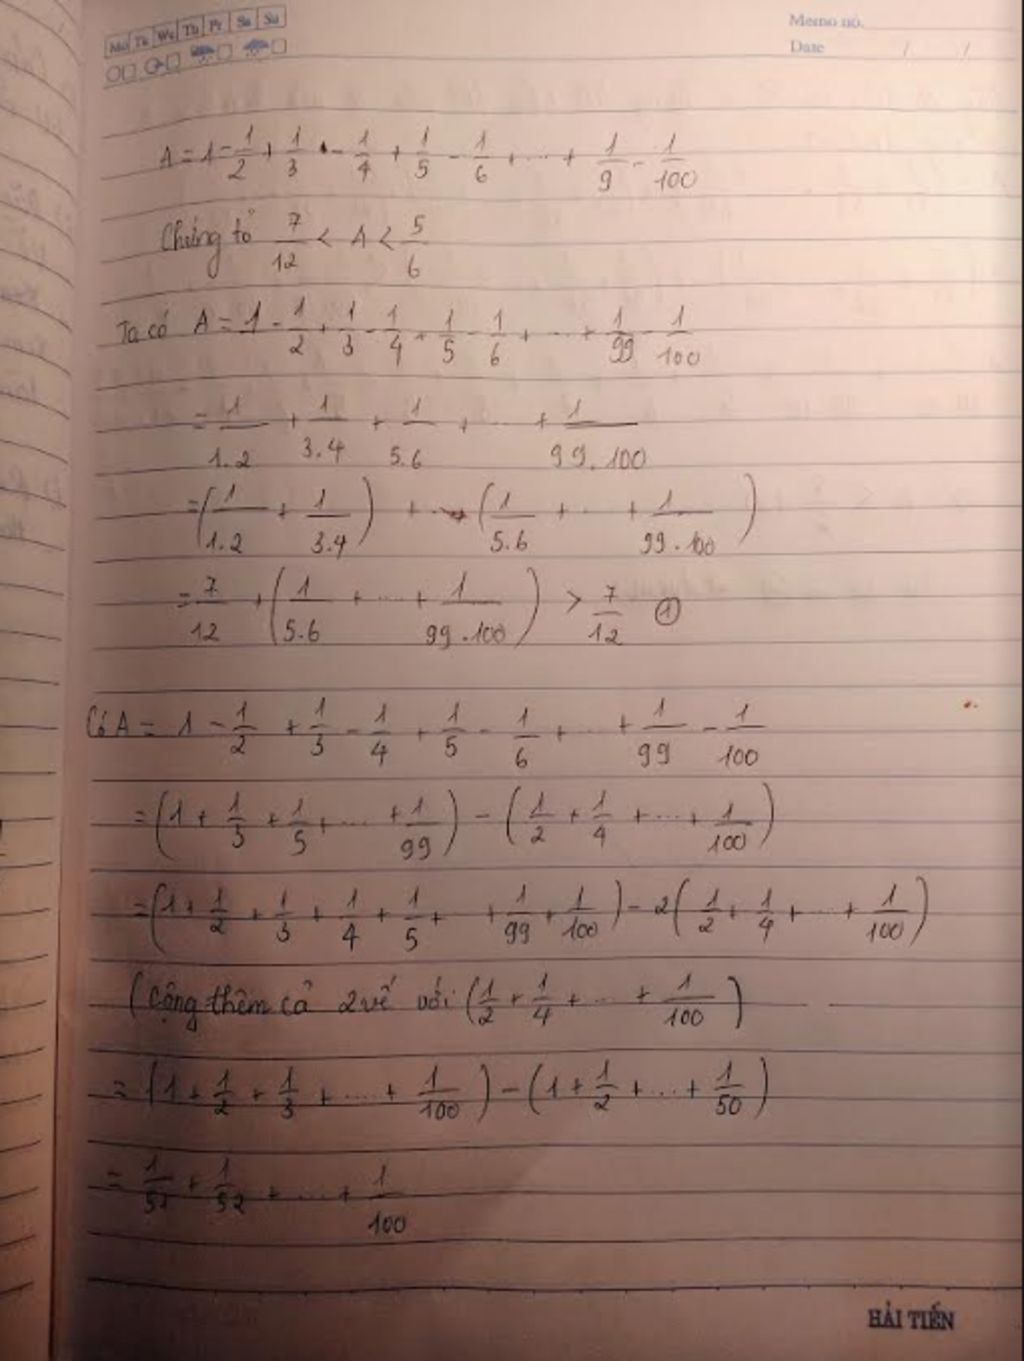 Mo Tu We Th Fr Sa Su
Memo no.
Date / /
A = 1 - 1/2 + 1/3 - 1/4 + 1/5 - 1/6 + ... + 1/9 - 1/100
Chứng tỏ 7/12 < A < 5/6
Ta có A = 1 - 1/2 + 1/3 - 1/4 + 1/5 - 1/6 + ... + 1/99 - 1/100
= 1/1.2 + 1/3.4 + 1/5.6 + ... + 1/99.100
= (1/1.2 + 1/3.4) + (1/5.6 + ... + 1/99.100)
= 7/12 + (1/5.6 + ... + 1/99.100) > 7/12 ①
Có A = 1 - 1/2 + 1/3 - 1/4 + 1/5 - 1/6 + ... + 1/99 - 1/100
= (1 + 1/3 + 1/5 + ... + 1/99) - (1/2 + 1/4 + ... + 1/100)
= (1 + 1/2 + 1/3 + 1/4 + 1/5 + ... + 1/99 + 1/100) - 2(1/2 + 1/4 + ... + 1/100)
(Cộng thêm cả 2 vế với (1/2 + 1/4 + ... + 1/100)
= (1 + 1/2 + 1/3 + ... + 1/100) - (1 + 1/2 + ... + 1/50)
= 1/51 + 1/52 + ... + 1/100
HẢI TIẾN